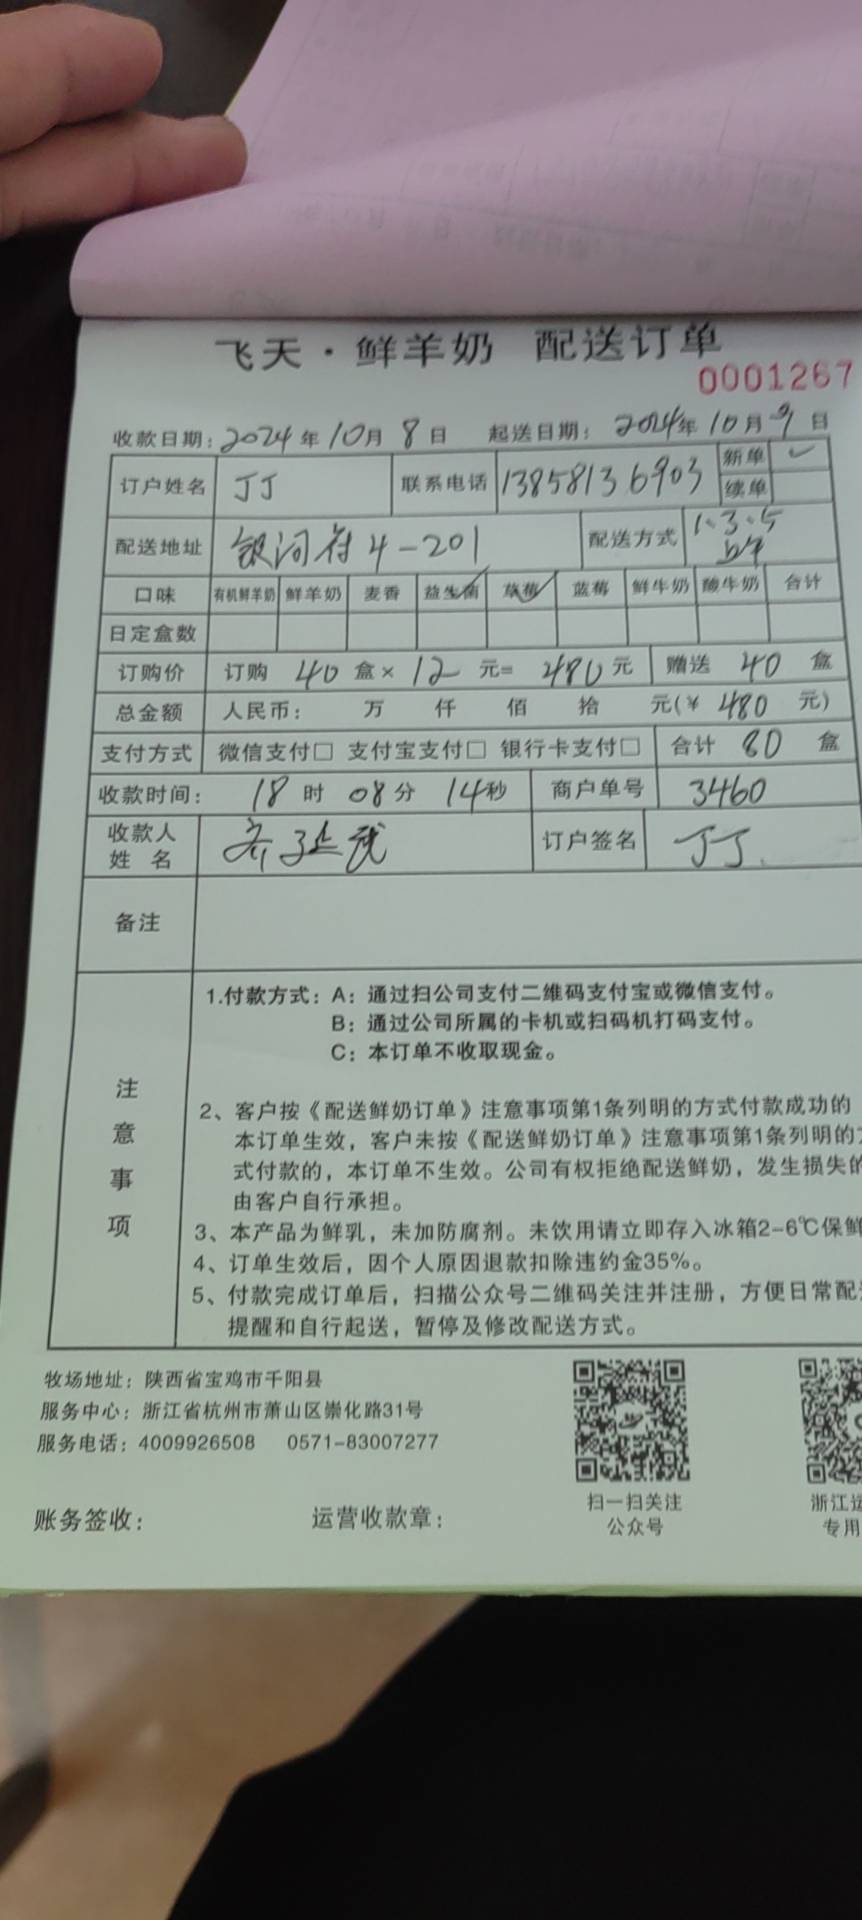 飞天·鲜羊奶 配送订单
0001267
收款日期：2024年10月8日 起送日期：2024年10月9日
订户姓名 丁丁 联系电话 13858136903 新单 ✓
续单
配送地址 银河府4-201 配送方式 1、3、5
口味 有机鲜羊奶 鲜羊奶 麦香 益生菌 草莓 蓝莓 鲜牛奶 酸牛奶 合计
日定盒数
订购价 订购 40 盒× 12 元= 480元 赠送 40 盒
总金额 人民币： 万 仟 佰 拾 元(¥ 480 元)
支付方式 微信支付□ 支付宝支付□ 银行卡支付□ 合计 80 盒
收款时间： 18时 08分 14秒 商户单号 3460
收款人
姓 名 订户签名 丁丁
备注
注意事项
1.付款方式：A：通过扫公司支付二维码支付宝或微信支付。
B：通过公司所属的卡机或扫码机打码支付。
C：本订单不收取现金。
2、客户按《配送鲜奶订单》注意事项第1条列明的方式付款成功的
本订单生效，客户未按《配送鲜奶订单》注意事项第1条列明的方
式付款的，本订单不生效。公司有权拒绝配送鲜奶，发生损失的
由客户自行承担。
3、本产品为鲜乳，未加防腐剂。未饮用请立即存入冰箱2-6℃保鲜
4、订单生效后，因个人原因退款扣除违约金35%。
5、付款完成订单后，扫描公众号二维码关注并注册，方便日常配送
提醒和自行起送，暂停及修改配送方式。
牧场地址：陕西省宝鸡市千阳县
服务中心：浙江省杭州市萧山区崇化路31号
服务电话：4009926508 0571-83007277
扫一扫关注
公众号
浙江运
专用
账务签收： 运营收款章：